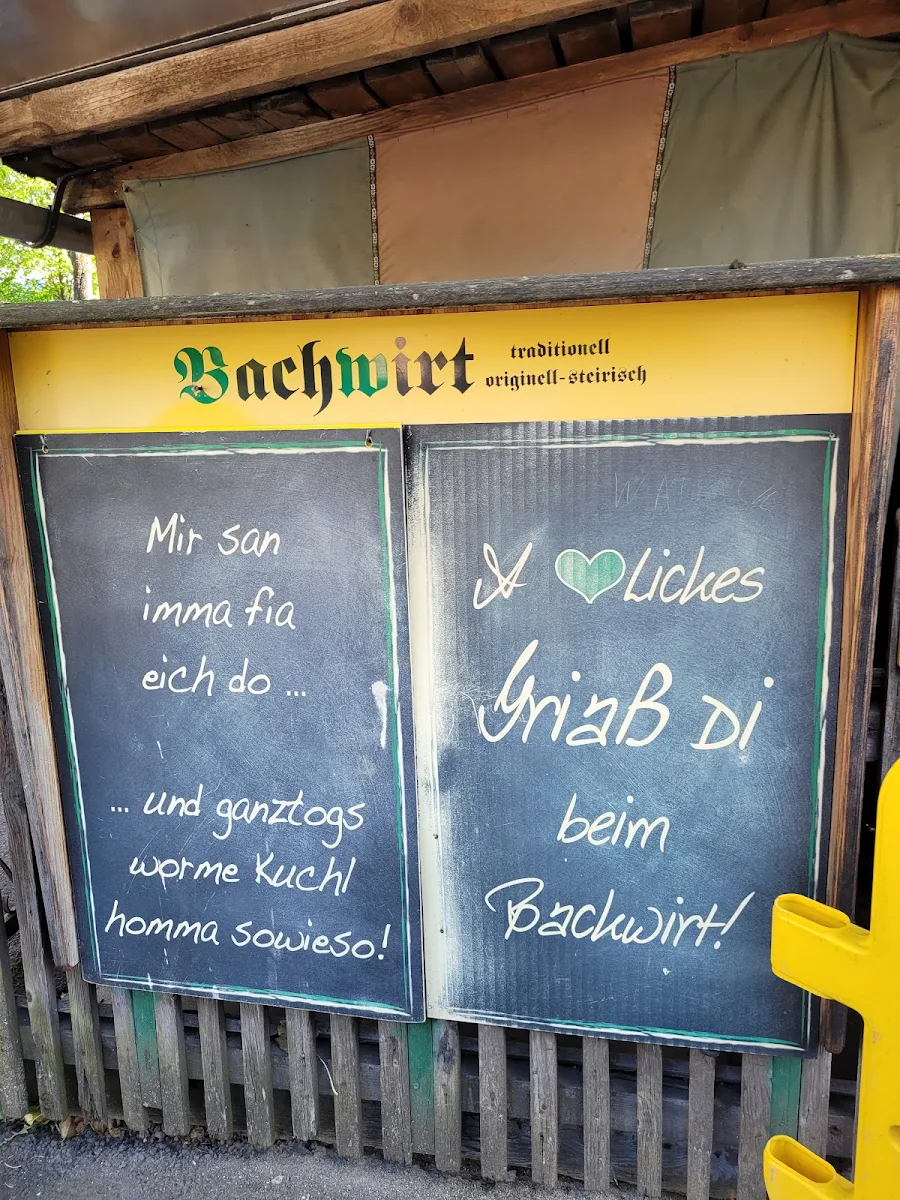 Bachwirt
traditionell
originell-steirisch
Mir san
imma fia
eich do ...
... und ganztogs
worme Kuchl
homma sowieso!
A ♥Liches
Griaß Di
beim
Bachwirt!